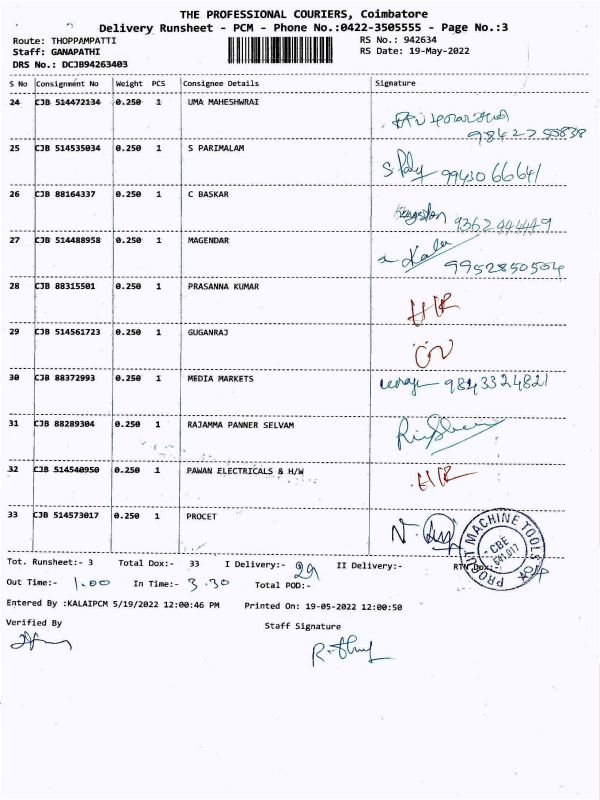 THE PROFESSIONAL COURIERS, Coimbatore
Delivery Runsheet - PCM - Phone No.:0422-3505555 - Page No.:3
Route: THOPPAMPATTI RS No.: 942634
Staff: GANAPATHI RS Date: 19-May-2022
DRS No.: DCJB94263403
S No Consignment No Weight PCS Consignee Details Signature
24 CJB 514472134 0.250 1 UMA MAHESHWRAI
98422 55838
25 CJB 514535034 0.250 1 S PARIMALAM
99430 66641
26 CJB 88164337 0.250 1 C BASKAR
9362444449
27 CJB 514488958 0.250 1 MAGENDAR
9952850504
28 CJB 88315501 0.250 1 PRASANNA KUMAR
29 CJB 514561723 0.250 1 GUGANRAJ
30 CJB 88372993 0.250 1 MEDIA MARKETS 9843324821
31 CJB 88289304 0.250 1 RAJAMMA PANNER SELVAM
32 CJB 514540950 0.250 1 PAWAN ELECTRICALS & H/W
33 CJB 514573017 0.250 1 PROCET
MACHINE TOOLS
CBE
641 017
Tot. Runsheet:- 3 Total Dox:- 33 I Delivery:- 29 II Delivery:- RTN Dox:-
Out Time:- 1.00 In Time:- 3.30 Total POD:-
Entered By :KALAIPCM 5/19/2022 12:00:46 PM Printed On: 19-05-2022 12:00:50
Verified By Staff Signature